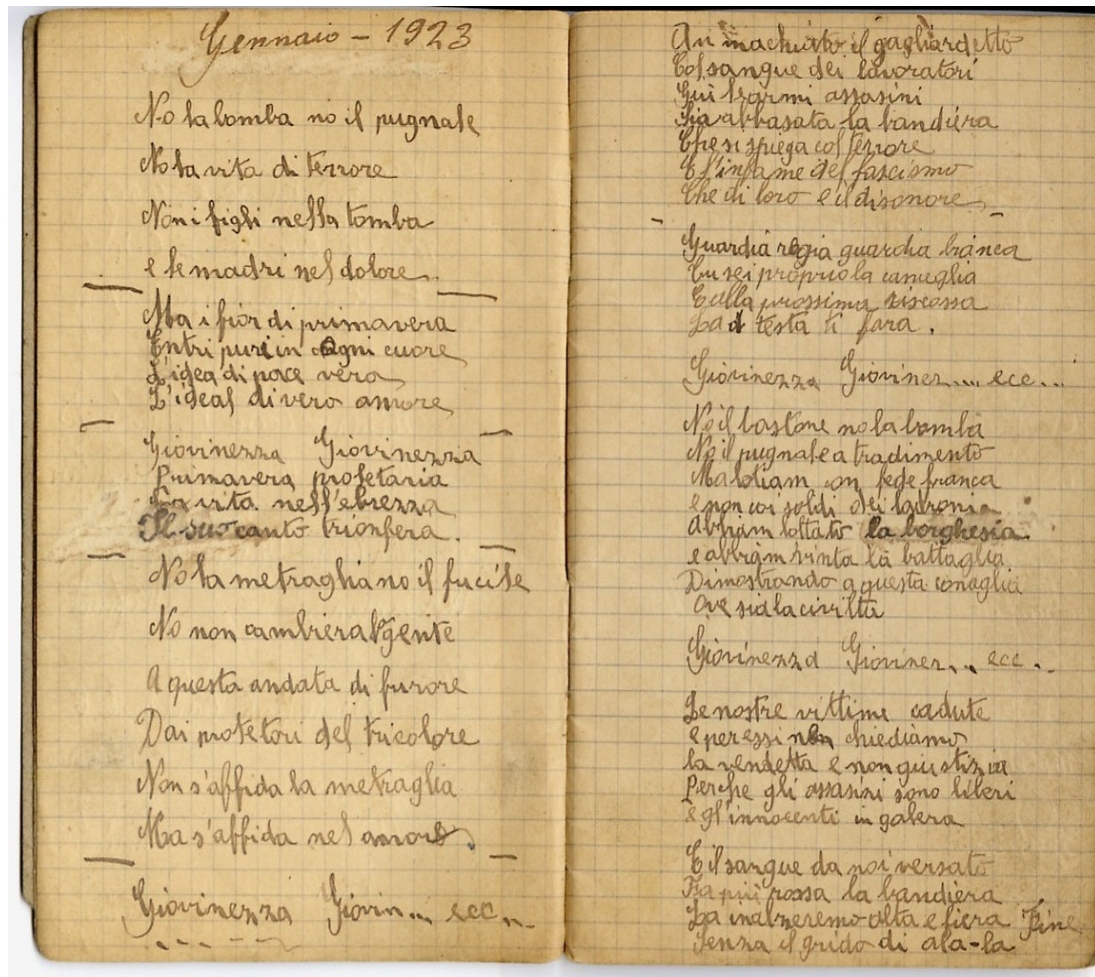 Gennaio - 1923
No la bomba no il pugnale
No la vita di terrore
Non i figli nella tomba
e le madri nel dolore.
Ma i fior di primavera
Entri pure in ogni cuore
L'idea di pace vera
L'ideal di vero amore
Giovinezza Giovinezza
Primavera proletaria
La vita nell'ebrezza
Il suo canto trionfera.
No la metraglia no il fucile
No non cambiera gente
A questa andata di furore
Dai protetori del tricolore
Non s'affida la metraglia
Ma s'affida nel amore.
Giovinezza Giovin... ecc..
An machiato il gagliardetto
Col sangue dei lavoratori
Giù le armi assasini
Sia abbasata la bandiera
Che si spiega col terrore
E l'infame del fascismo
Che di loro e il disonore
Guardia regia guardia bianca
Tu sei proprio la cameglia
E alla prossima riscossa
La testa ti fara.
Giovinezza Giovinez.... ecc...
No il bastone no la bomba
No il pugnale a tradimento
Ma lotiam con fede franca
e non coi soldi dei ladroni
Abbiam lottato la borghesia
e abbiam vinta la battaglia
Dimostrando a questa canaglia
Ove sia la civiltà
Giovinezza Giovinez... ecc..
Le nostre vittime cadute
e per essi non chiediamo
la vendetta e non giustizia
Perche gli assasini sono liberi
e gl'innocenti in galera
E il sangue da noi versato
Fa più rossa la bandiera
La inalzeremo alta e fiera Fine
Senza il grido di ala-la